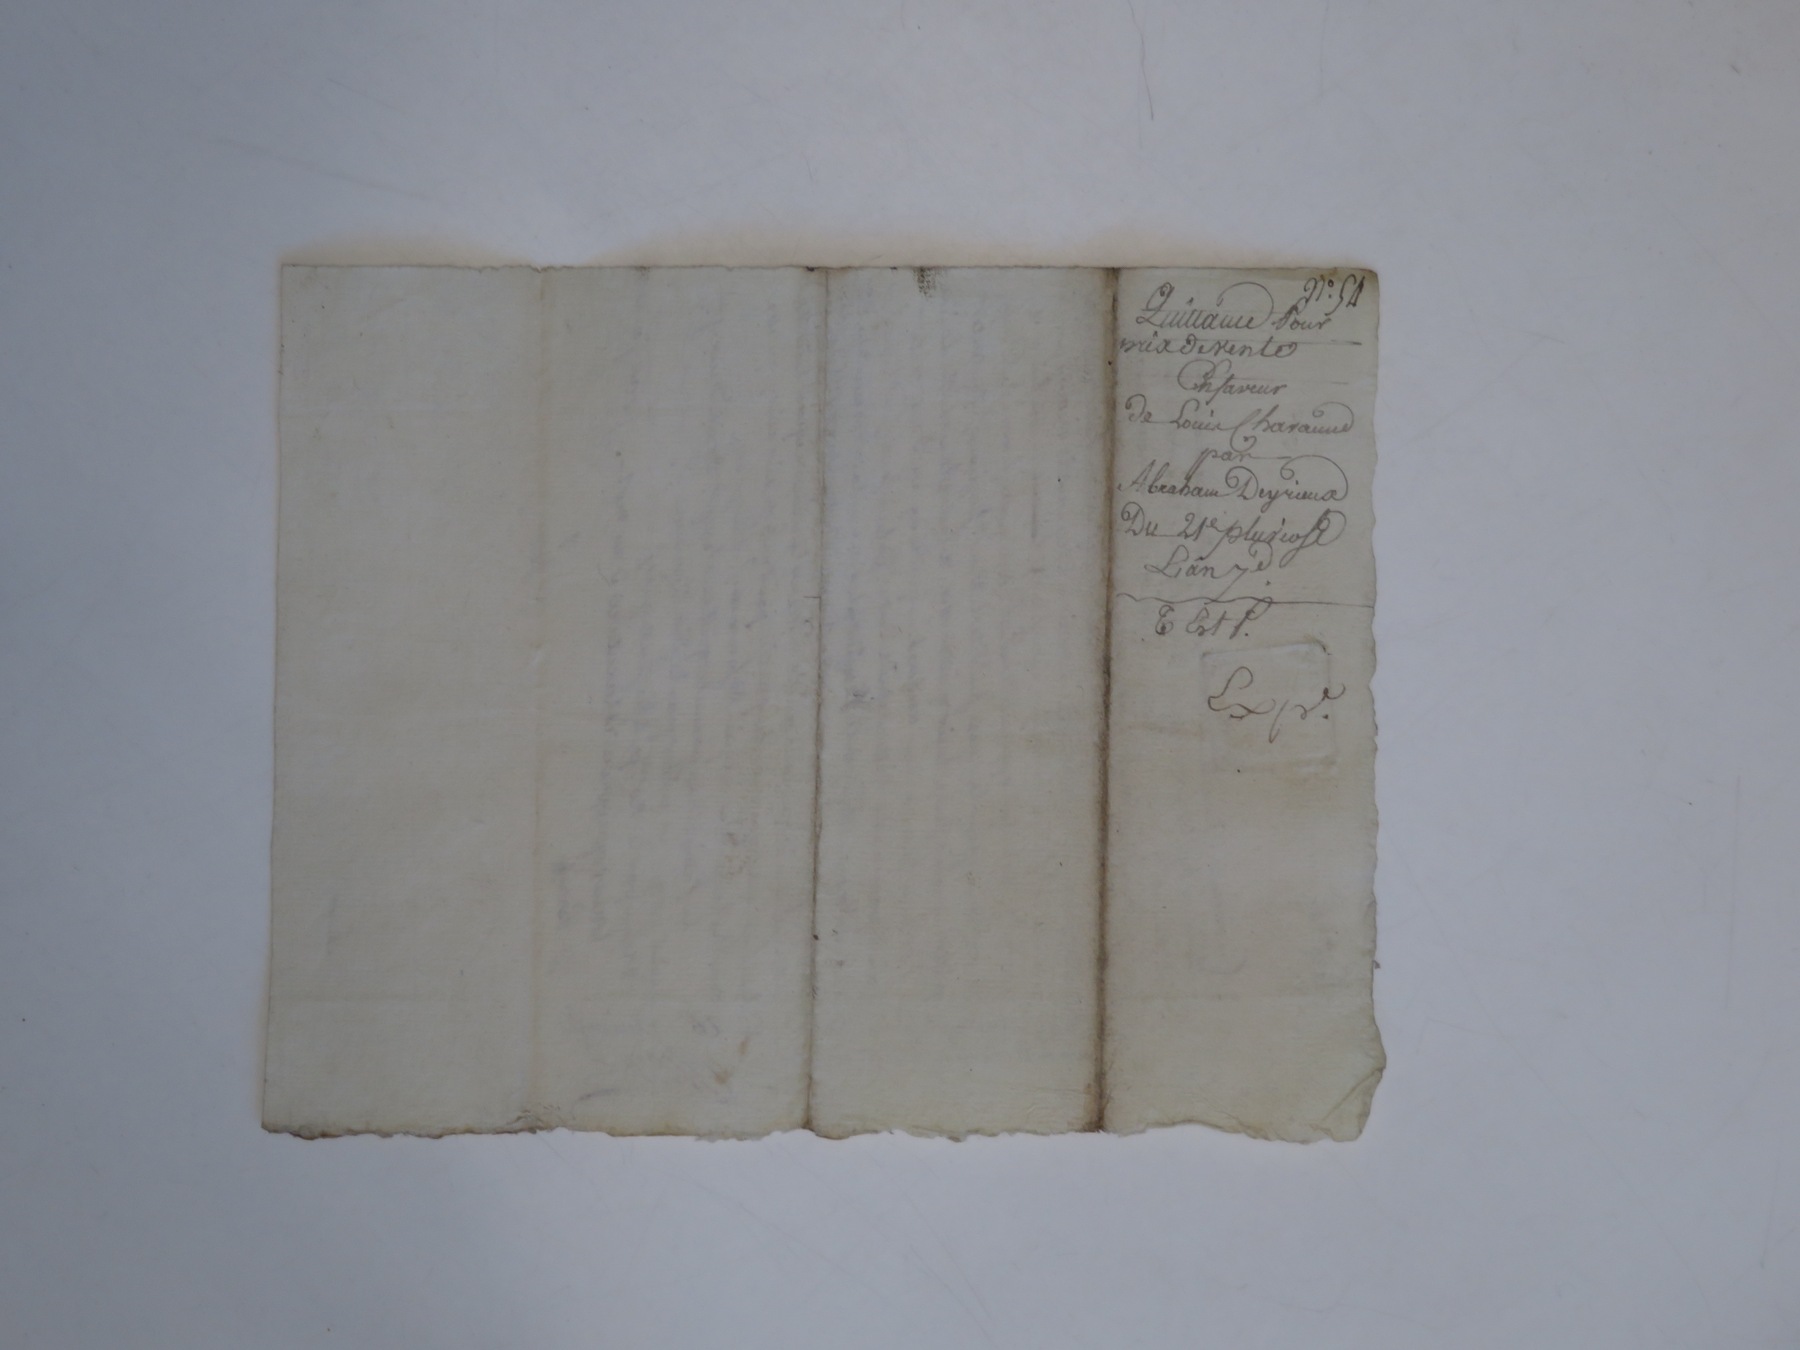 N.º 54
Quittance Pour
prix de vente
En faveur
de Louis Charanne
par
Abraham Deyrieux
Du 21e pluviose
L'an 7e
Exp.e